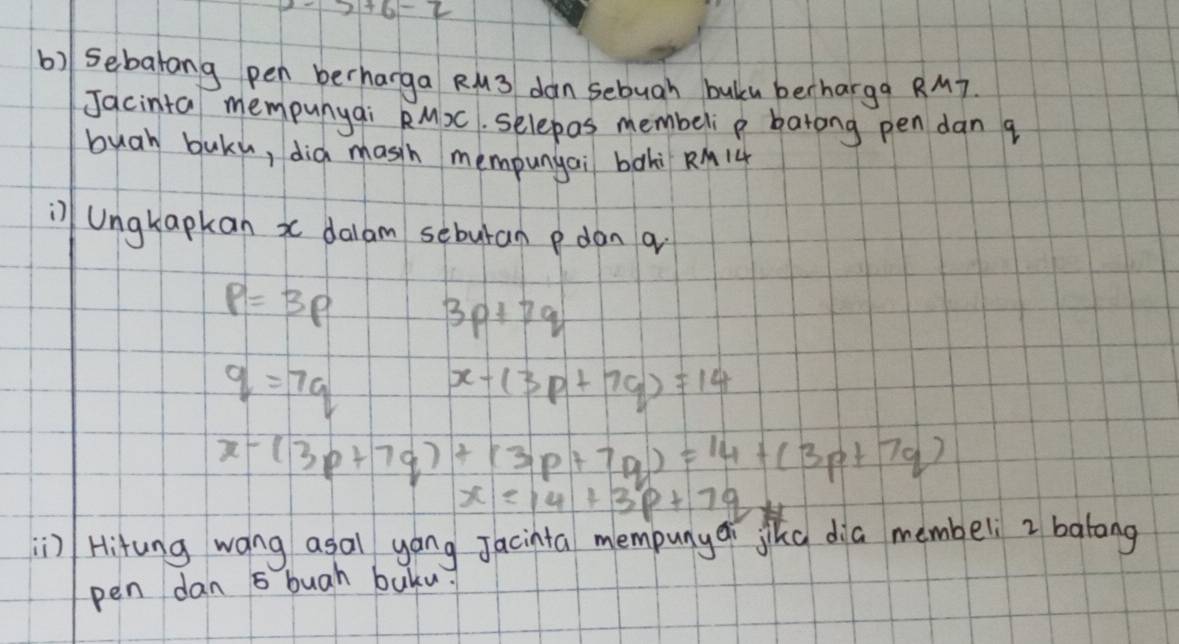 b) Sebatang pen berharga RM3 dan sebuah buku berharga RM7.
Jacinta mempunyai RMx. Selepas membeli p batang pen dan q
buah buku, dia masih mempunyai baki RM14
i) Ungkapkan x dalam sebutan p dan q.
P = 3p 3p + 7q
q = 7q x - (3p + 7q) = 14
x - (3p + 7q) + (3p + 7q) = 14 + (3p + 7q)
x = 14 + 3p + 7q
ii) Hitung wang asal yang Jacinta mempunyai jika dia membeli 2 batang
pen dan 5 buah buku.